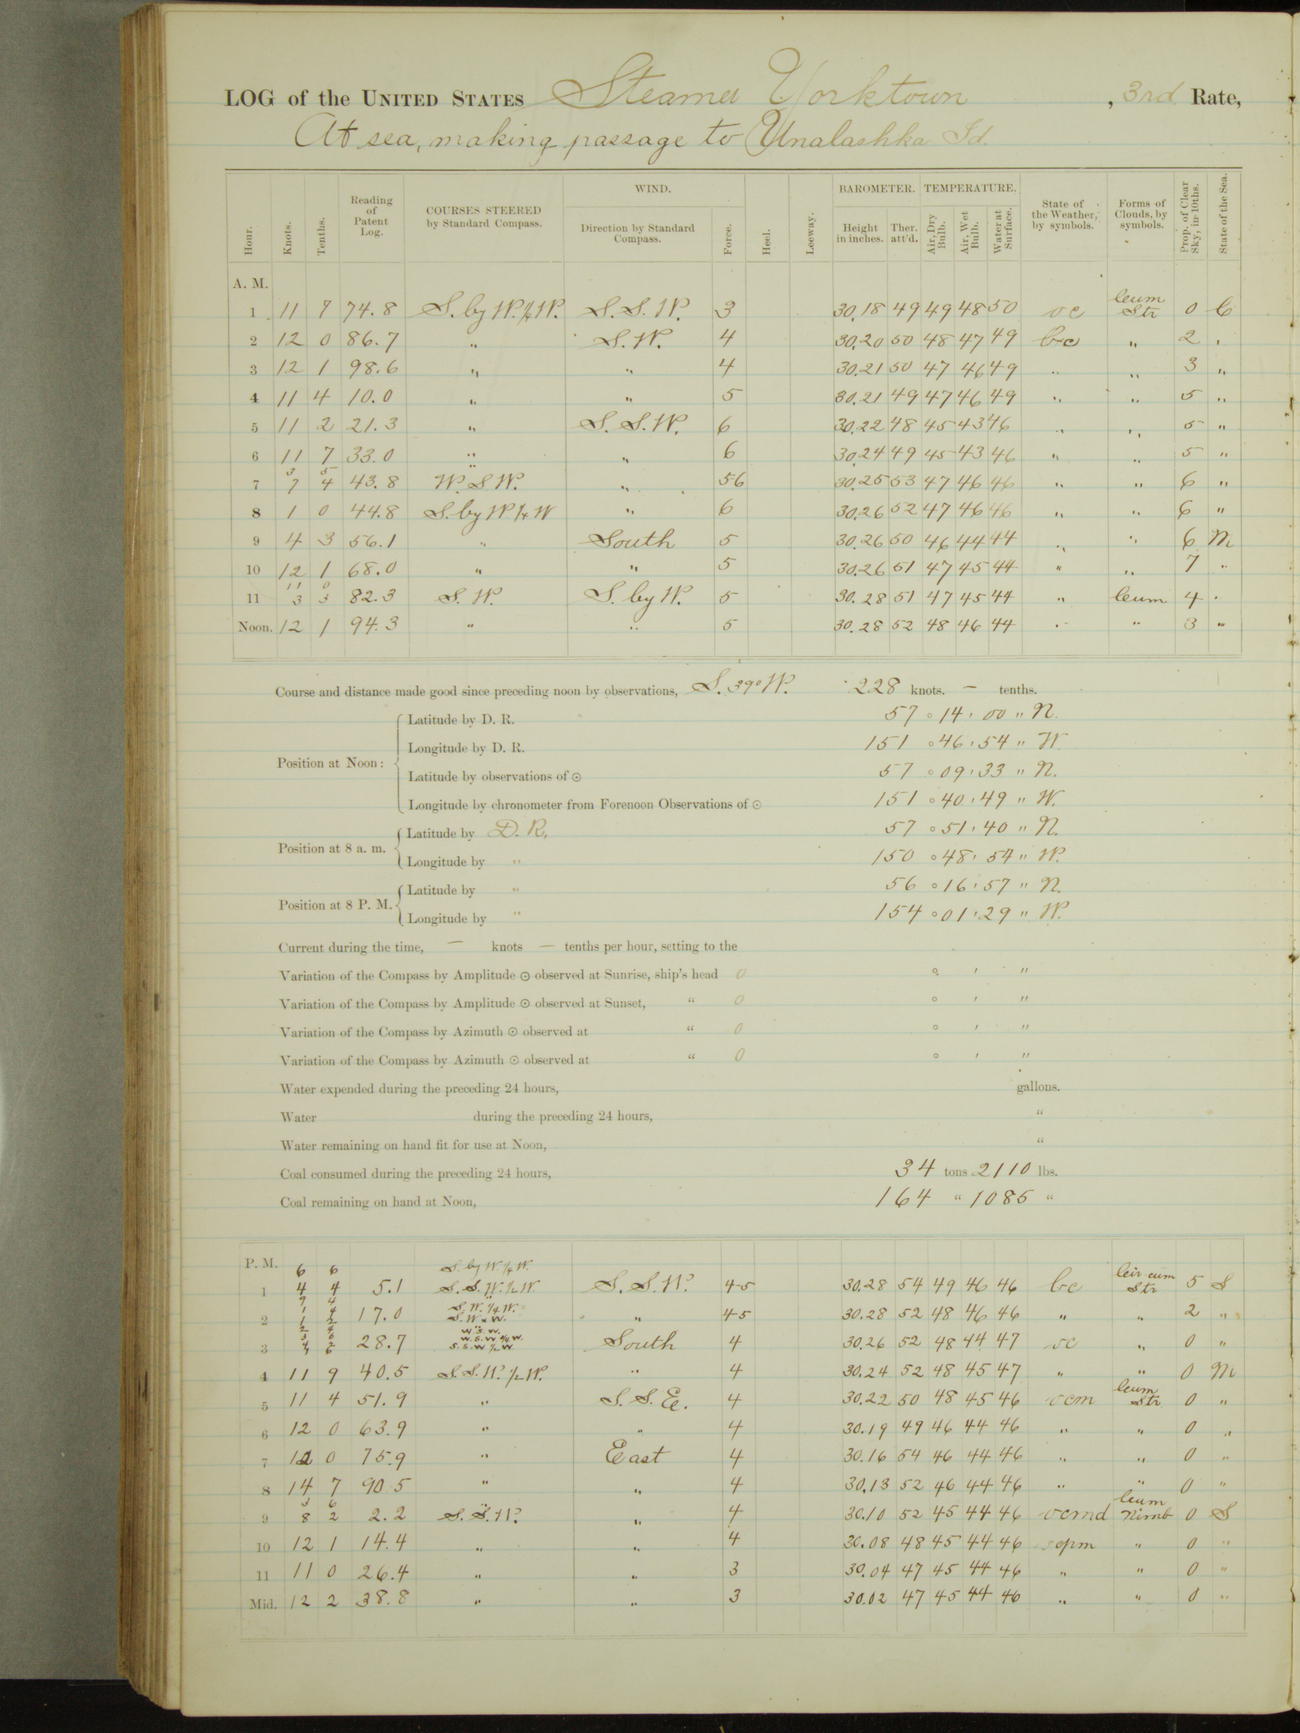 LOG of the UNITED STATES Steamer Yorktown, 3rd Rate,
At sea, making passage to Unalashka Id.
Hour. Knots. Tenths. Reading of Patent Log. COURSES STEERED by Standard Compass. WIND. Direction by Standard Compass. Force. Heel. Leeway. BAROMETER. Height in inches. Ther. att'd. TEMPERATURE. Air, Dry Bulb. Air, Wet Bulb. Water at Surface. State of the Weather, by symbols. Forms of Clouds, by symbols. Prop. of Clear Sky, in 10ths. State of the Sea.
A. M.
1 11 7 74.8 S. by W. ½ W. S. S. W. 3 30.18 49 49 48 50 oc Cum Str 0 C
2 12 0 86.7 " S. W. 4 30.20 50 48 47 49 bc " 2 "
3 12 1 98.6 " " 4 30.21 50 47 46 49 " " 3 "
4 11 4 10.0 " " 5 30.21 49 47 46 49 " " 5 "
5 11 2 21.3 " S. S. W. 6 30.22 48 45 43 46 " " 5 "
6 11 7 33.0 " " 6 30.24 49 45 43 46 " " 5 "
3 5
7 7 4 43.8 W. S. W. " 56 30.25 53 47 46 46 " " 6 "
8 1 0 44.8 S. by W ¼ W " 6 30.26 52 47 46 46 " " 6 "
9 4 3 56.1 " South 5 30.26 50 46 44 44 " " 6 M
10 12 1 68.0 " " 5 30.26 51 47 45 44 " " 7 "
11 0
11 3 3 82.3 S. W. S. by W. 5 30.28 51 47 45 44 " Cum 4 "
Noon. 12 1 94.3 " " 5 30.28 52 48 46 44 " " 3 "
Course and distance made good since preceding noon by observations, S. 39° W. 228 knots. — tenths.
Position at Noon: Latitude by D. R. 57 ° 14 ' 00 " N.
Longitude by D. R. 151 ° 46 ' 54 " W.
Latitude by observations of ⊙ 57 ° 09 ' 33 " N.
Longitude by chronometer from Forenoon Observations of ⊙ 151 ° 40 ' 49 " W.
Position at 8 a. m. Latitude by D. R. 57 ° 51 ' 40 " N.
Longitude by " 150 ° 48 ' 54 " W.
Position at 8 P. M. Latitude by " 56 ° 16 ' 57 " N.
Longitude by " 154 ° 01 ' 29 " W.
Current during the time, — knots — tenths per hour, setting to the
Variation of the Compass by Amplitude ⊙ observed at Sunrise, ship's head 0 ° ' "
Variation of the Compass by Amplitude ⊙ observed at Sunset, " 0 ° ' "
Variation of the Compass by Azimuth ⊙ observed at " 0 ° ' "
Variation of the Compass by Azimuth ⊙ observed at " 0 ° ' "
Water expended during the preceding 24 hours, gallons.
Water during the preceding 24 hours, "
Water remaining on hand fit for use at Noon, "
Coal consumed during the preceding 24 hours, 34 tons 2110 lbs.
Coal remaining on hand at Noon, 164 " 1085 "
P. M.
6 6 S. by W. ¼ W.
1 4 4 5.1 S. S. W. ½ W. S. S. W. 4-5 30.28 54 49 46 46 bc Cir cum Str 5 S
2 17.0 S. W. ¼ W. " 4-5 30.28 52 48 46 46 " " 2 "
W. S. W.
W. S. W ¾ W.
3 28.7 S. S. W ½ W South 4 30.26 52 48 44 47 oc " 0 "
4 11 9 40.5 S. S. W. ½ W. " 4 30.24 52 48 45 47 " " 0 M
5 11 4 51.9 " S. S. E. 4 30.22 50 48 45 46 ocm Cum Str 0 "
6 12 0 63.9 " " 4 30.19 49 46 44 46 " " 0 "
7 12 0 75.9 " East 4 30.16 54 46 44 46 " " 0 "
8 14 7 90.5 " " 4 30.13 52 46 44 46 " " 0 "
3 6
9 8 2 2.2 S. S. W. " 4 30.10 52 45 44 46 ocmd Cum Nimb 0 S
10 12 1 14.4 " " 4 30.08 48 45 44 46 " 0 "
11 11 0 26.4 " " 3 30.04 47 45 44 46 " " 0 "
Mid. 12 2 38.8 " " 3 30.02 47 45 44 46 " " 0 "